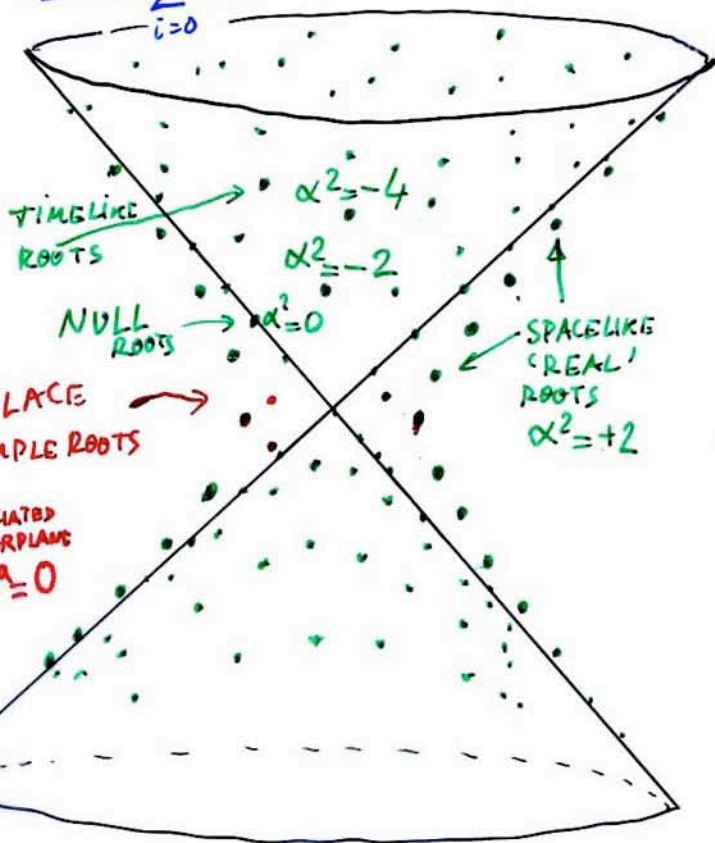 i=0
TIMELIKE
ROOTS
α²=-4
α²=-2
NULL
ROOTS
α²=0
SPACELIKE
'REAL'
ROOTS
α²=+2
LACE
MPLE ROOTS
=0